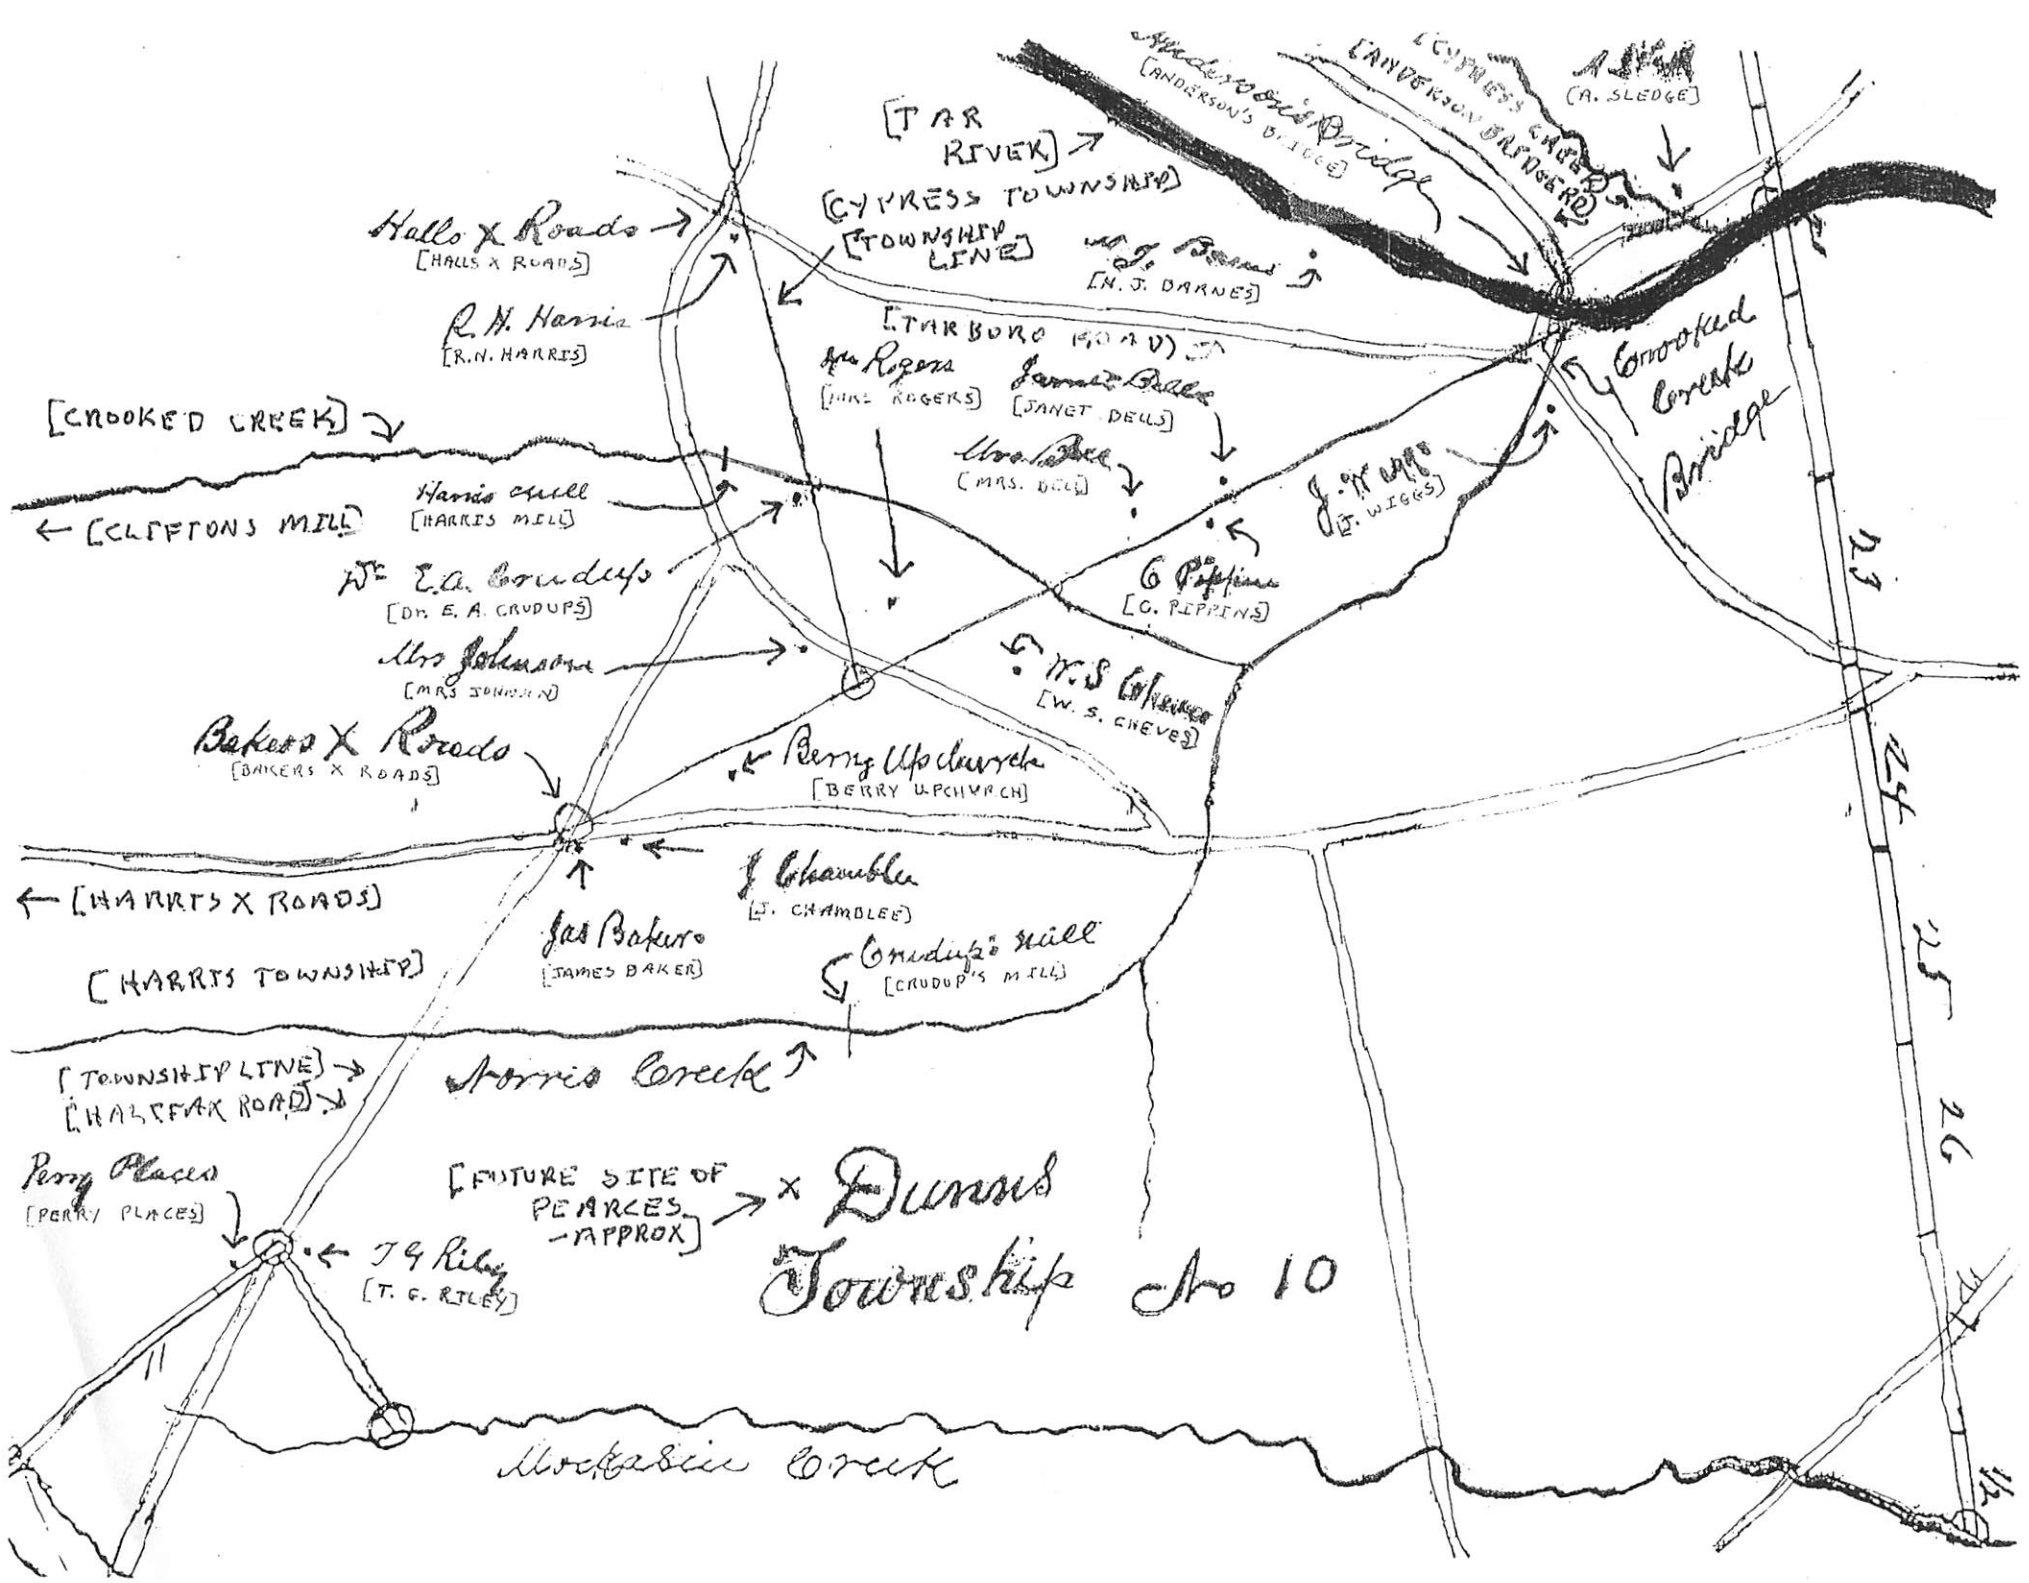 Anderson's Bridge
[ANDERSON'S BRIDGE]
[CYPRESS CREEK]
[ANDERSON BRIDGE RD]
[A. SLEDGE]
[TAR
RIVER]
[CYPRESS TOWNSHIP]
[TOWNSHIP
LINE]
Halls X Roads
[HALLS X ROADS]
R. N. Harris
[R.N. HARRIS]
N. J. Barnes
[N. J. BARNES]
[TARBORO ROAD]
Crooked
Creek
Bridge
Mrs Rogers
[MRS ROGERS]
[JANET DELLS]
[CROOKED CREEK]
[MRS. DELL]
J. Wiggs
[J. WIGGS]
Harris Mill
[HARRIS MILL]
[CLIFTONS MILL]
Dr E. A. Crudups
[Dr. E. A. CRUDUPS]
C Pippins
[C. PIPPINS]
23
Mrs Johnson
[MRS JOHNSON]
W. S Cheves
[W. S. CHEVES]
Bakers X Roads
[BAKERS X ROADS]
Berry Upchurch
[BERRY UPCHURCH]
24
J Chamblee
[J. CHAMBLEE]
[HARRIS X ROADS]
Jas Bakers
[JAMES BAKER]
Crudup's Mill
[CRUDUP'S MILL]
25
[HARRIS TOWNSHIP]
[TOWNSHIP LINE]
[HALIFAX ROAD]
Norris Creek
26
Perry Places
[PERRY PLACES]
[FUTURE SITE OF
PEARCES
-APPROX]
X
Dunns
Township No 10
T G Riley
[T. G. RILEY]
11
Mockasin Creek
1/2